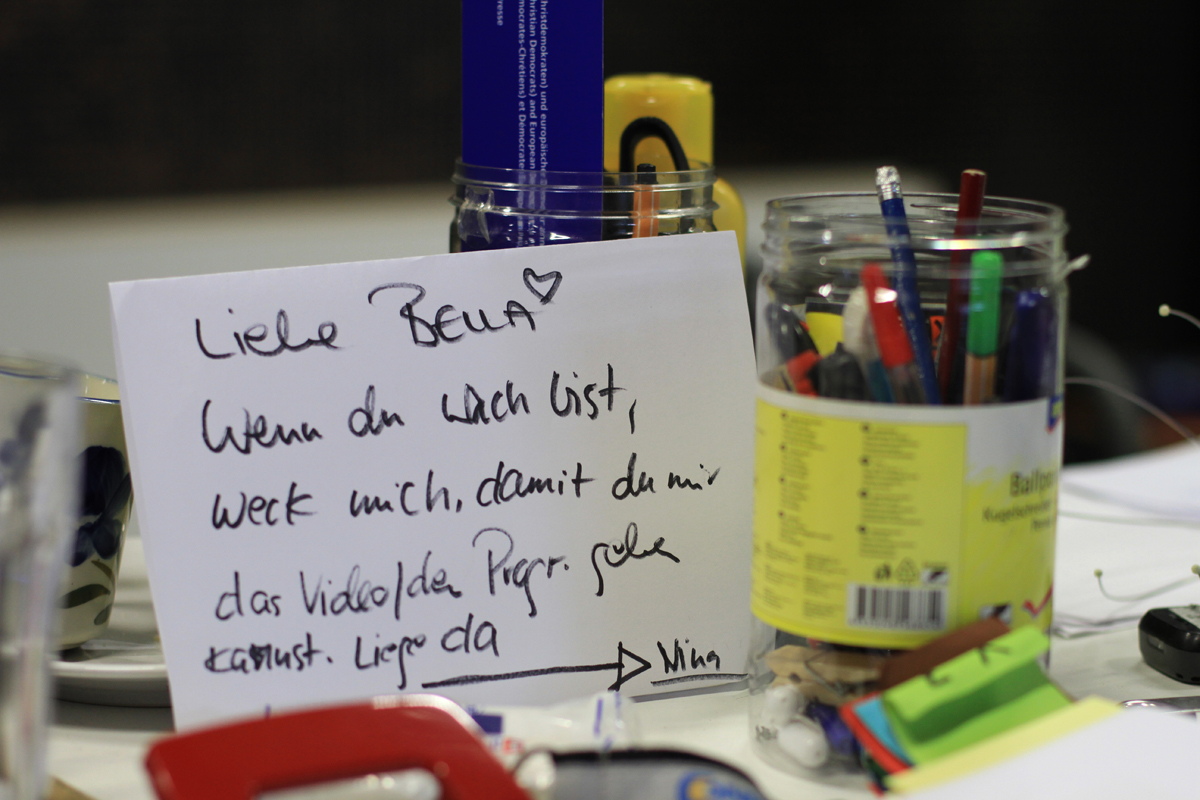 Liebe BELLA
Wenn du wach bist,
weck mich, damit du mir
das Video/den Progr. geben
kannst. Liege da
Nina
hristdemokraten) und europäische
hristian Democrats) and European
mocrates-Chrétiens) et Démocrate
resse
Ballpo
Kugelschreiber